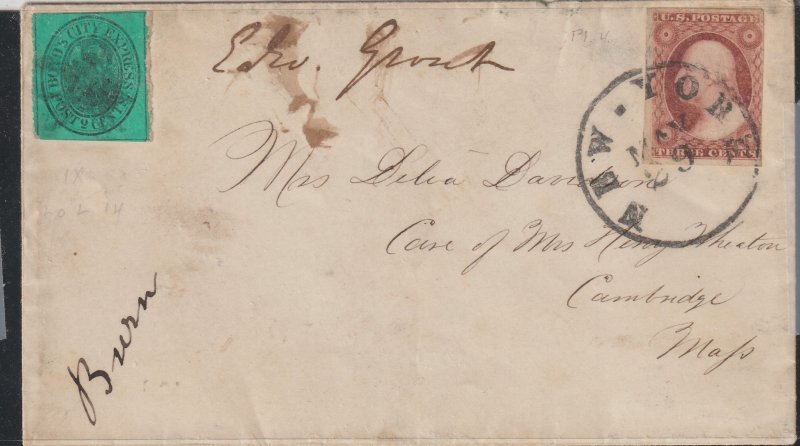 BOYD'S CITY EXPRESS
POST 2 CENTS
Edw. Grout
Pl. 4
U.S. POSTAGE
THREE CENTS
NEW YORK
MAY
9
1X
20 L 14
Mrs Delia Davidson
Care of Mrs Henry Wheaton
Cambridge
Mass
Burn